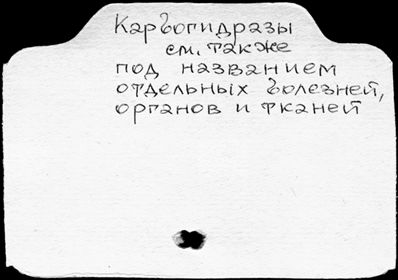 Карбогидразы
см. также
под названием
отдельных болезней,
органов и тканей